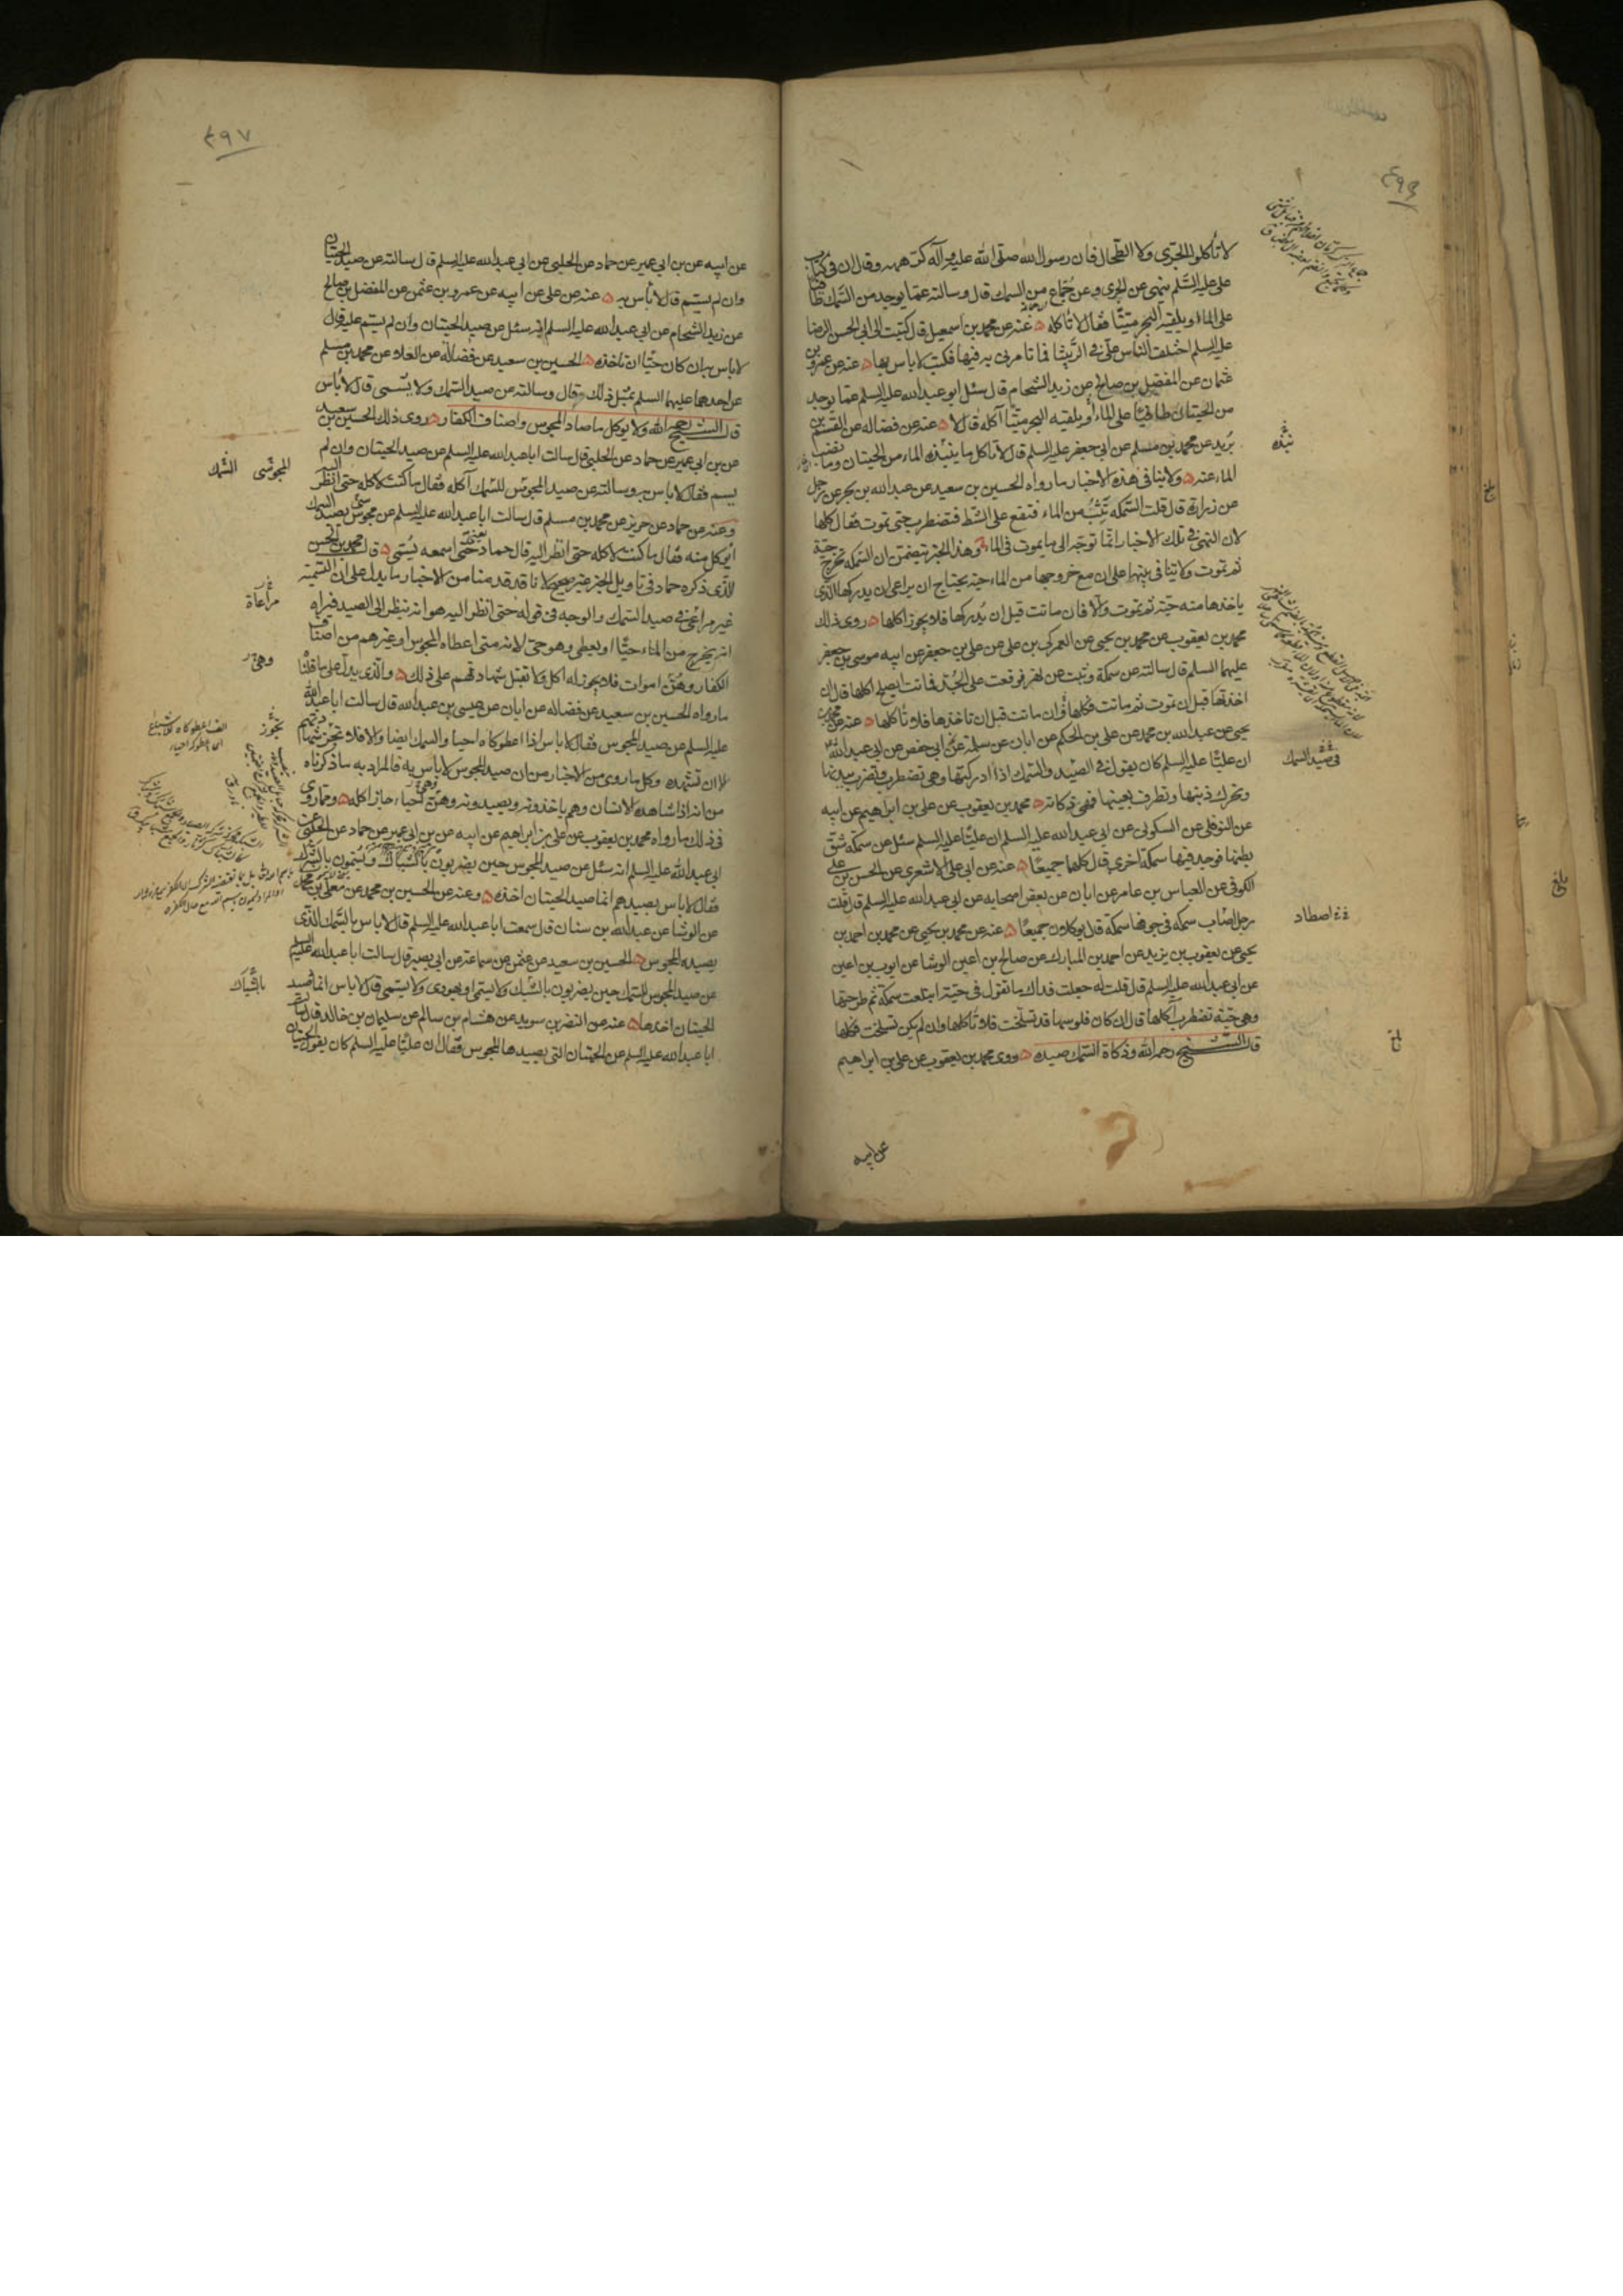 ٤٩٦
لا تأكلوا الجرّي ولا الطحال فان رسول الله صلى الله عليه وآله كرهه وقال ان في كتاب
علي عليه السلم ينهى عن الجري وعن جُمّاع من السمك قال وسالته عما يوجد من السمك طافيا
على الماء او يلقيه البحر ميّتًا فقال لا تأكله عنه عن محمد بن اسمعيل قال كتبت الى ابي الحسن الرضا
عليه السلم اختلف الناس علي في الرَّبيثا فما تامرني به فيها فكتب لا باس بها عنه عن عمرو بن
عثمان عن المفضل بن صالح عن زيد الشحام قال سئل ابو عبد الله عليه السلم عما يوجد
من الحيتان طافيًا على الماء او يلقيه البحر ميّتًا آكله قال لا عنه عن فضاله عن القسم بن
بُرَيد عن محمد بن مسلم عن ابي جعفر عليه السلم قال لا تاكل ما ينبذه الماء من الحيتان وما نضب
الماء عنه ولا ينافي هذه الاخبار ما رواه الحسين بن سعيد عن عبد الله بن بحر عن رجل
عن زرارة قال قلت السَّمكه تَثِبُ من الماء فتقع على الشط فتضطرب حتى تموت فقال كلها
لان النهي في تلك الاخبار انما توجّه الى ما يموت في الماء وهذا الخبر يتضمن ان السَّمكه تخرج حيّة
ثم تموت ولا تنافي بينهما على ان مع خروجها من الماء حيّة يحتاج ان يراعى ان يدركها الذي
ياخذها منه حيّة ثم تموت والّا فان ماتت قبل ان يُدركها فلا يجوز اكلها روى ذلك
محمد بن يعقوب عن محمد بن يحيى عن العمركي بن علي عن علي بن جعفر عن اخيه موسى بن جعفر
عليهما السلم قال سالته عن سمكة وثبت من نهر فوقعت على الجُدّ فماتت ايصلح اكلها قال ان
اخذتها قبل ان تموت ثم ماتت فكلها وان ماتت قبل ان تاخذها فلا تأكلها عنه عن محمد بن
يحيى عن عبد الله بن محمد عن علي بن الحكم عن ابان عن سلمة عن ابي حفص عن ابي عبد الله
ان عليًّا عليه السلم كان يقول في الصَّيد والسَّمك اذا ادركتها وهي تضطرب وتضرب بيديها
وتحرك ذنبها وتطرف بعينها فهي ذكاته محمد بن يعقوب عن علي بن ابراهيم عن ابيه
عن النوفلي عن السكوني عن ابي عبد الله عليه السلم ان عليًّا عليه السلم سئل عن سمكة شق
بطنها فوجد فيها سمكة اخرى قال كلها جميعًا عنه عن ابي علي الاشعري عن الحسن بن علي
الكوفي عن العباس بن عامر عن ابان عن بعض اصحابه عن ابي عبد الله عليه السلم قال قلت
رجل اصاب سمكه في جوفها سمكة قال يوكلان جميعًا عنه عن محمد بن يحيى عن محمد بن احمد بن
يحيى عن يعقوب بن يزيد عن احمد بن المبارك عن صالح بن اعين الوشا عن ايوب بن اعين
عن ابي عبد الله عليه السلم قال قلت له جعلت فداك ما تقول في حيّة ابتلعت سمكة ثم طرحتها
وهي حيّة تضطرب آكلها قال ان كان فلوسها قد تسلّخت فلا تأكلها وان لم يكن تسلخت فكلها
قال الشيخ رحمه الله وذكاة السَّمك صيده روى محمد بن يعقوب عن علي بن ابراهيم
عن ابيه
نبذه
في صيد السمك
اصطاد
بلغ
٤٩٧
عن ابيه عن بن ابي عمير عن حماد عن الحلبي عن ابي عبد الله عليه السلم قال سالته عن صيد الحيتان
وان لم يسمّ قال لا بأس به عنه عن علي عن ابيه عن عمرو بن عثمن عن المفضل بن صالح
عن زيد الشحام عن ابي عبد الله عليه السلم انه سئل عن صيد الحيتان وان لم يسمّ عليه قال
لا باس به ان كان حيّا ان تاخذه الحسين بن سعيد عن فضاله عن العلاء عن محمد بن مسلم
عن احدهما عليهما السلم بمثل ذلك وقال وسالته عن صيد السمك ولا يسمى قال لا بأس
قال الشيخ رحمه الله ولا يوكل ما صاد المجوس واصناف الكفار روى ذلك الحسين بن سعيد
عن بن ابي عمير عن حماد عن الحلبي قال سالت ابا عبد الله عليه السلم عن صيد الحيتان وان لم
يسم فقال لا باس به وسالته عن صيد المجوس للسمك آكله فقال ما كنت لاكله حتى انظر اليه
وعنه عن حماد عن حريز عن محمد بن مسلم قال سالت ابا عبد الله عليه السلم عن مجوسي يصيد السمك
ايوكل منه فقال ما كنت لاكله حتى انظر اليه قال حماد يعني حتى اسمعه يُسمّي قال محمد بن الحسن
الذي ذكره حماد في تاويل الخبر غير صحيح لانا قد قدمنا من الاخبار ما يدل على ان التسمية
غير مراعى في صيد السمك والوجه في قوله حتى انظر اليه هو انه ينظر الى الصيد فيراه
انه يخرج من الماء حيًّا او يعطى وهو حي لانه متى اعطاه المجوس او غيرهم من اصناف
الكفار وهُنَّ اموات فلا يجوز له اكل ولا تقبل شهادتهم على ذلك والذي يدل على ما قلنا
ما رواه الحسين بن سعيد عن فضاله عن ابان عن عيسى بن عبد الله قال سالت ابا عبد الله
عليه السلم عن صيد المجوس فقال لا باس اذا اعطوكاه احيا والسمك ايضا والا فلا تجز شهادتهم
الا ان تشهده وكل ما روى من الاخبار من ان صيد المجوس لا باس به فالمراد به ما ذكرناه
من انه اذا شاهده الانسان وهم ياخذونه ويصيدونه وهنّ احياء جاز اكله وما روى
في ذلك ما رواه محمد بن يعقوب عن علي بن ابراهيم عن ابيه عن بن ابي عمير عن حماد عن الحلبي عن
ابي عبد الله عليه السلم انه سئل عن صيد المجوس حين يضربون بالشباك ويُسَمّون بالشرك
فقال لا باس بصيدهم انما صيد الحيتان اخذه وعنه عن الحسين بن محمد عن معلى بن محمد
عن الوشا عن عبد الله بن سنان قال سمعت ابا عبد الله عليه السلم قال لا باس بالسَّمك الذي
يصيده المجوس الحسين بن سعيد عن عثمن عن سماعة عن ابي بصير قال سالت ابا عبد الله عليه السلم
عن صيد المجوس للسمك حين يضربون بالشبك ولا يسمّى او يهودى ولا يسمّى قال لا باس انما صيد
الحيتان اخذها عنه عن النضر بن سويد عن هشام بن سالم عن سليمان بن خالد قال سالت
ابا عبد الله عليه السلم عن الحيتان التي يصيدها المجوس فقال ان عليًّا عليه السلم كان يقول الحيتان
المجوسي السَّمك
مراعاة
وهي
يجوز
بالشباك